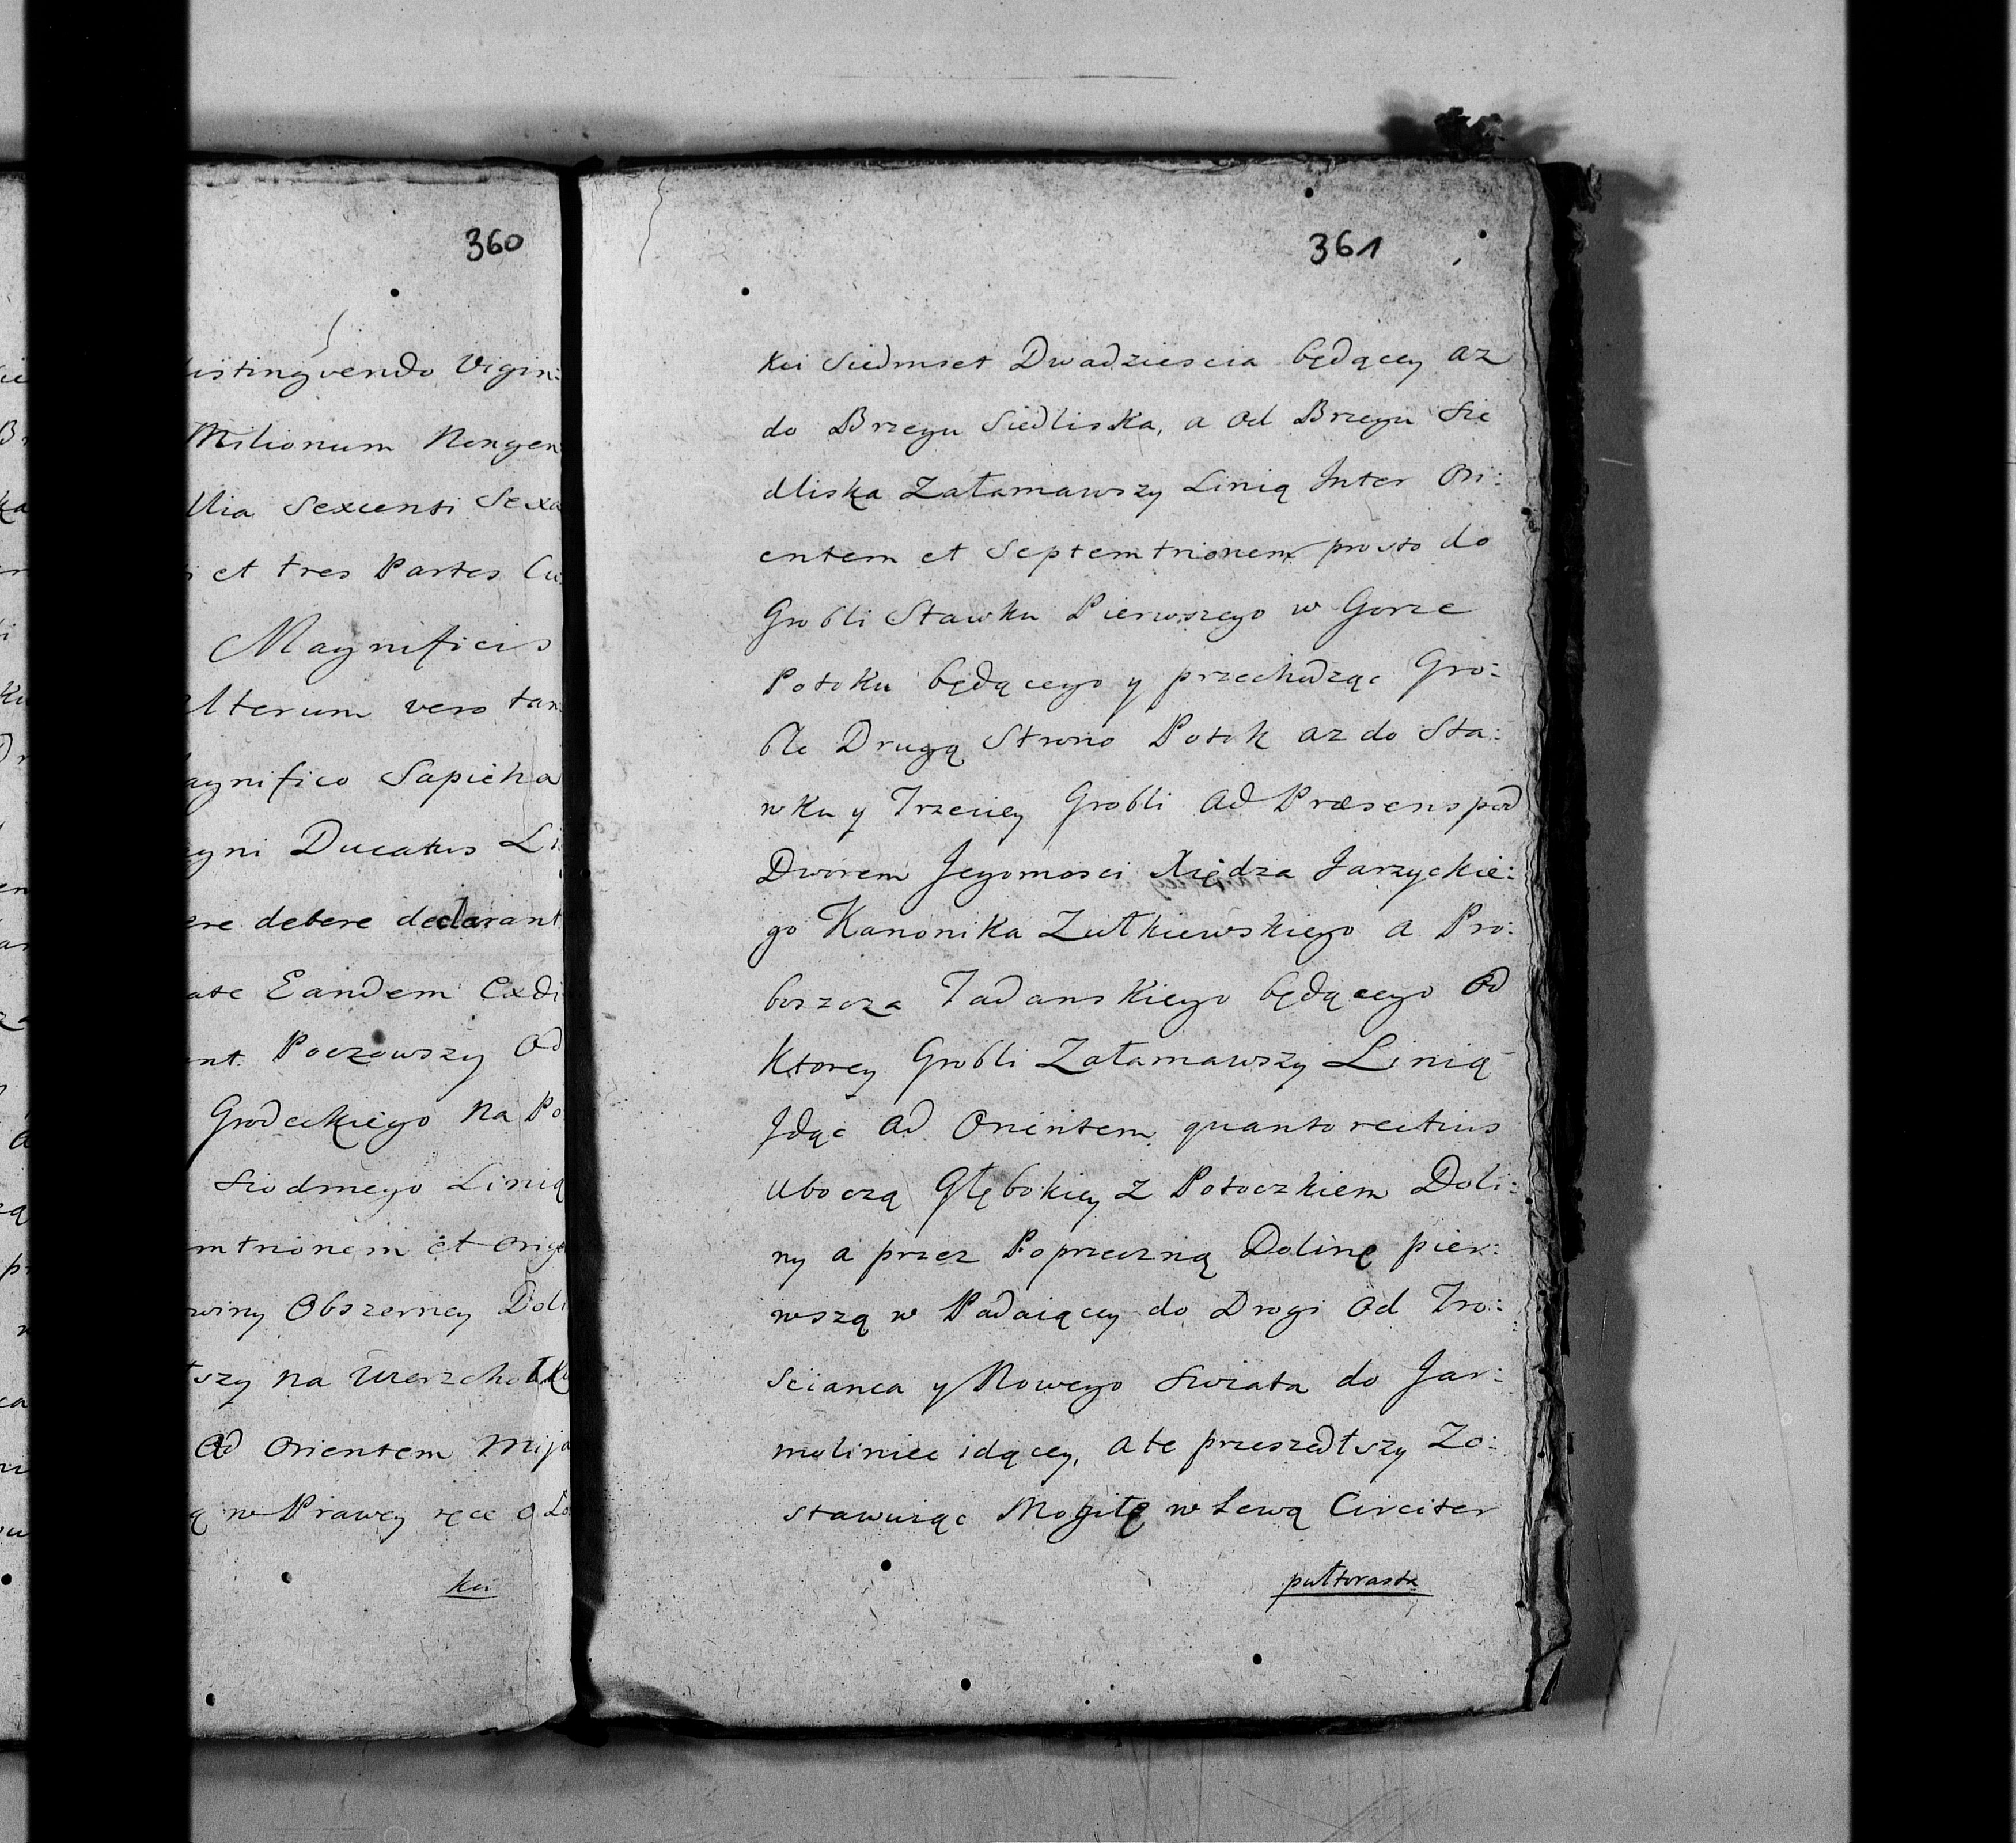 360
istingvendo Vigin:
Milionum Nongen
llia Sexcenti Sexa
et tres Partes Cu:
Magnificis
Alterum vero tan:
agnifico Sapieha
gni Ducatus Li
ere debere declarant
ate Eandem Exdi
ant. Poczowszy Od
Grodeckiego Na Po
Siodmego Linią
mtrionem et Orige
winy Obszerney Doli
szy Na Wierzchołki
Ad Orientem Mija
ą w Prawey ręce o
kii
361
kii Siedmset Dwadziescia będącey az
do Brzegu Siedliska, a Od Brzegu Sie
dliska Załamawszy Linią Inter Ori:
entem et Septemtrionem prosto do
Grobli Stawku Pierwszego w Gorze
Potoku będącego y przechodząc Gro:
ble Drugą Strono Potok az do Sta:
wku y Trzeciey Grobli Ad Præsens pod
Dworem Jegomosci Xiędza Jarzyckie:
go Kanonika Zułkiewskiego a Pro:
boszcza Tadanskiego będącego Od
Ktorey Grobli Załamawszy Linią
Idąc Ad Orientem quanto rectius
Uboczą Głębokiey z Potoczkiem Doli:
ny a przez Poprzeczną Dolinę pier:
wszą w Padaiącey do Drogi Od Tro:
scianca y Nowego Swiata do Jar:
moliniec idącey, a te przeszedłszy Zo:
stawuiąc Mogiłę w Lewą Circiter
pułtorasta